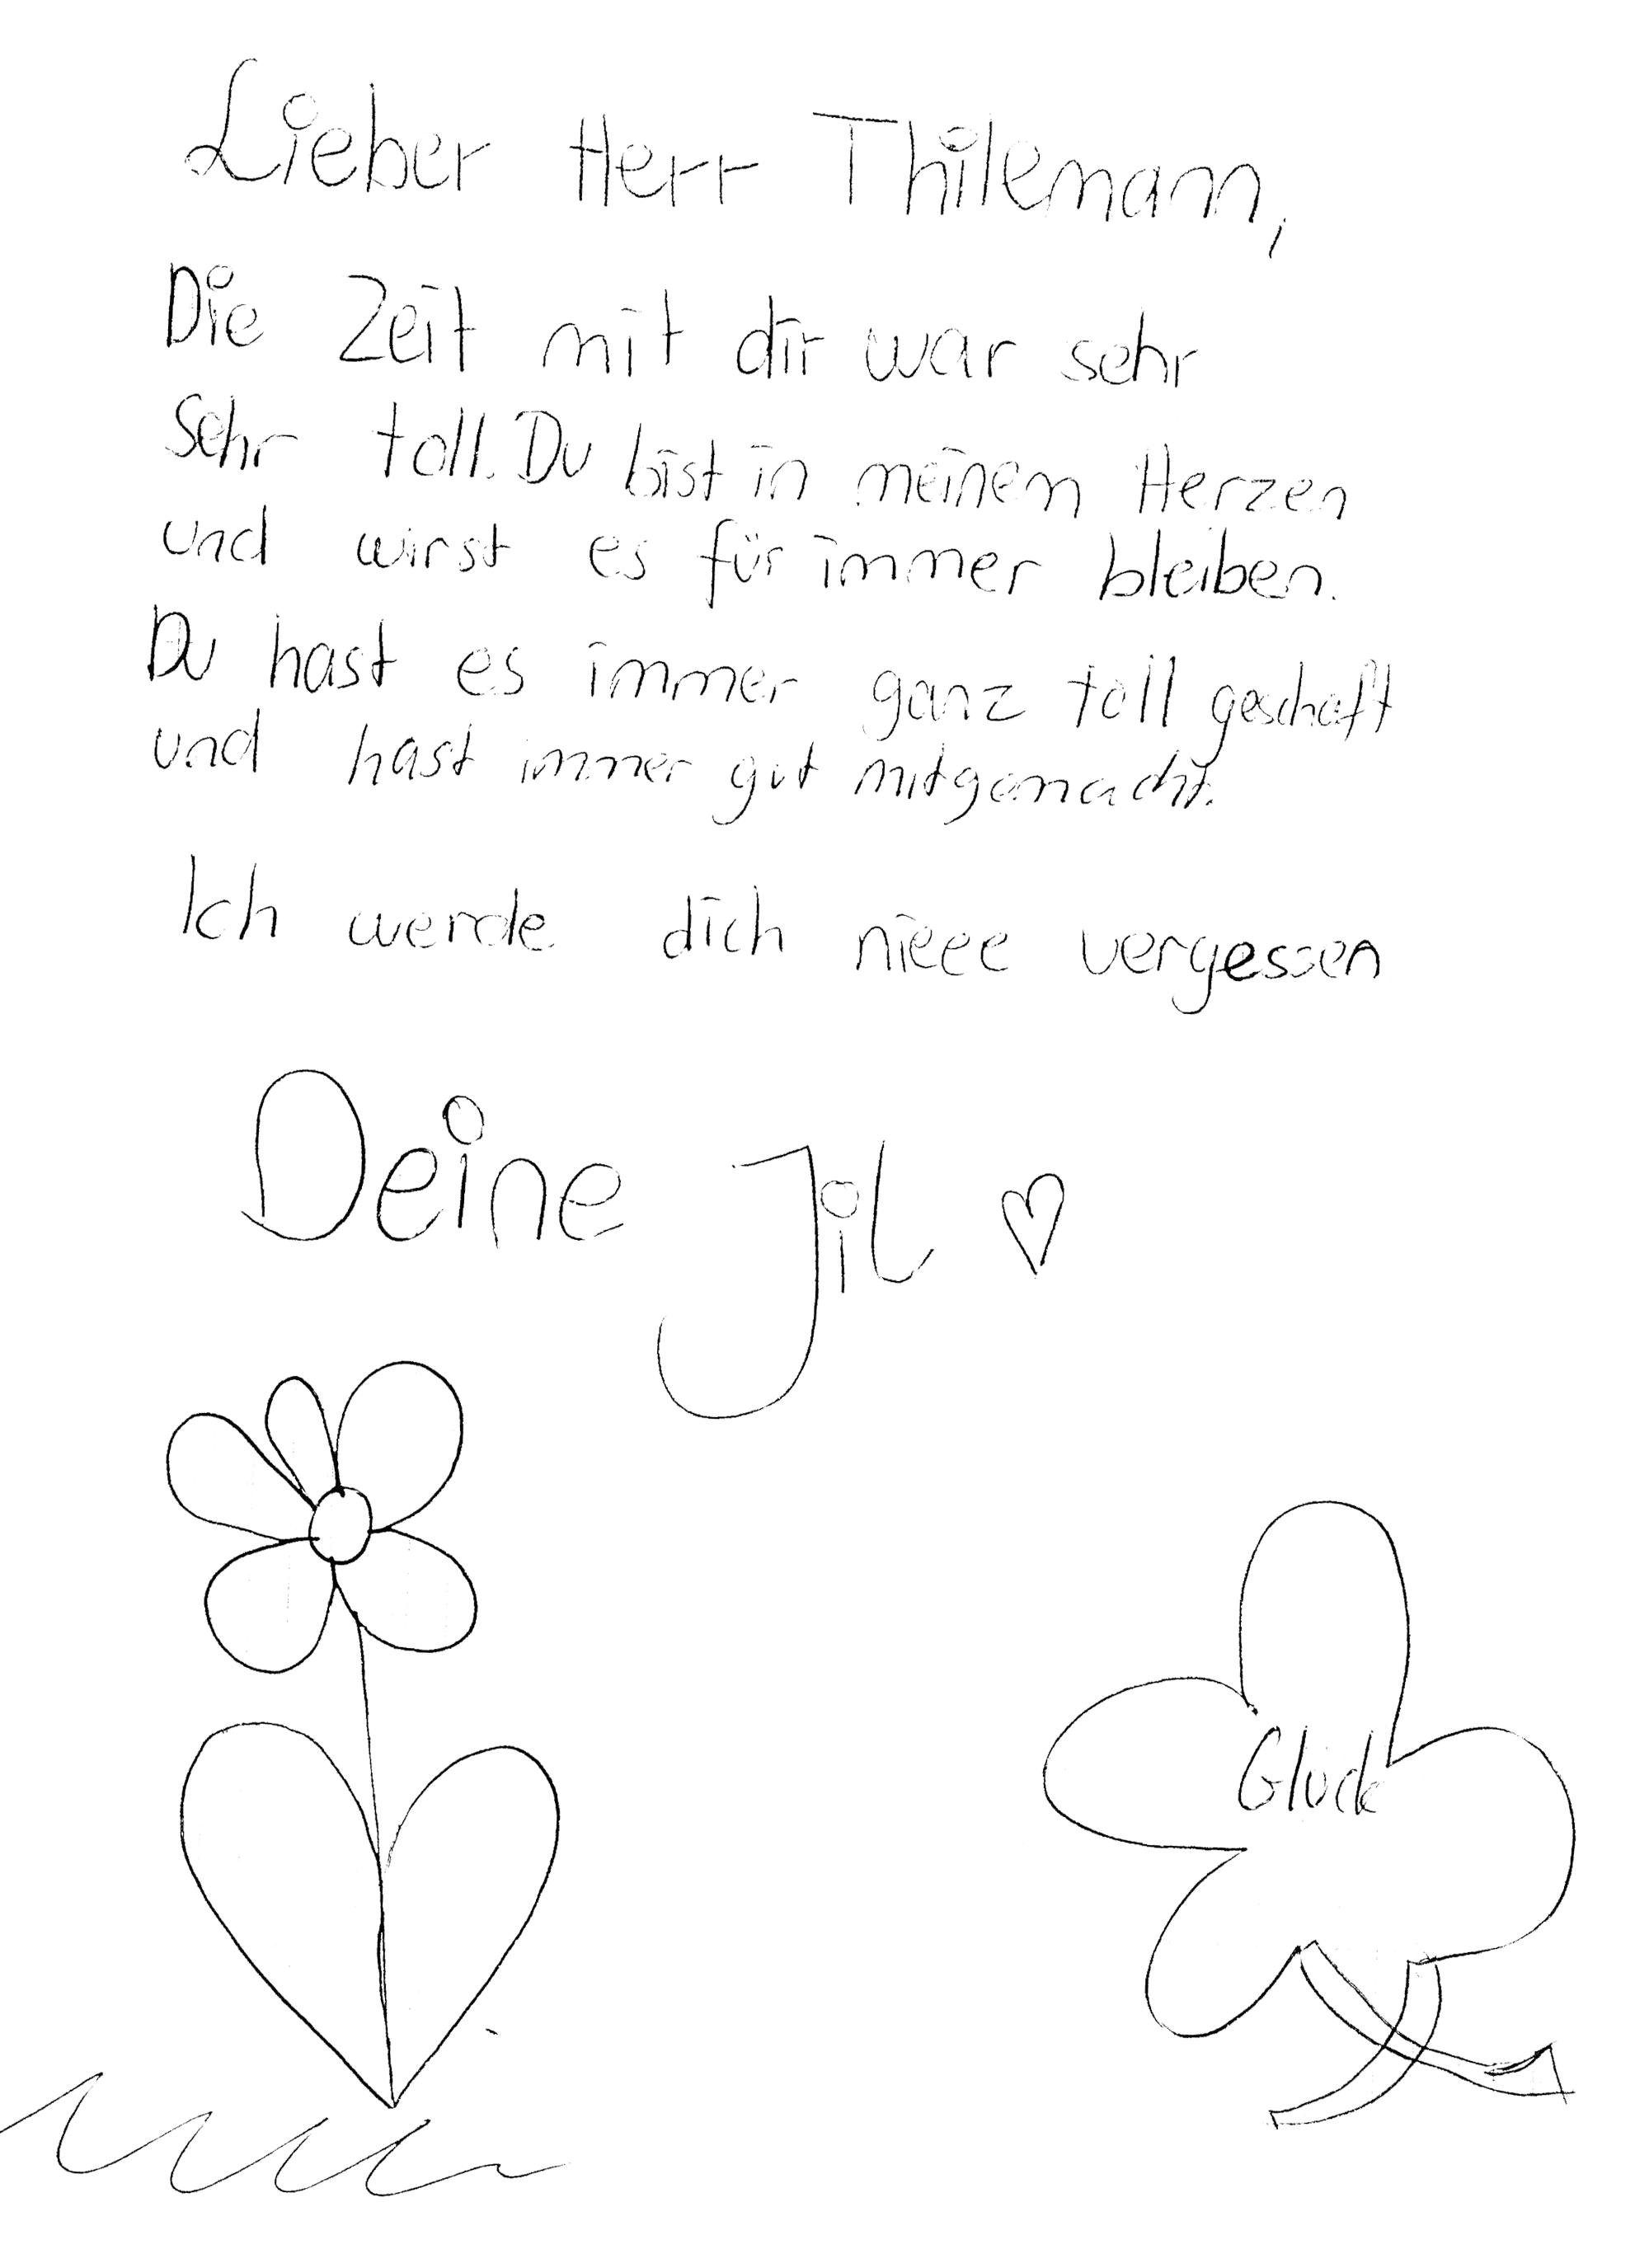 Lieber Herr Thilemann,
Die Zeit mit dir war sehr
sehr toll. Du bist in meinem Herzen
und wirst es für immer bleiben.
Du hast es immer ganz toll geschaft
und hast immer gut mitgemacht.
Ich werde dich nieee vergessen
Deine Jil ♡
Glück